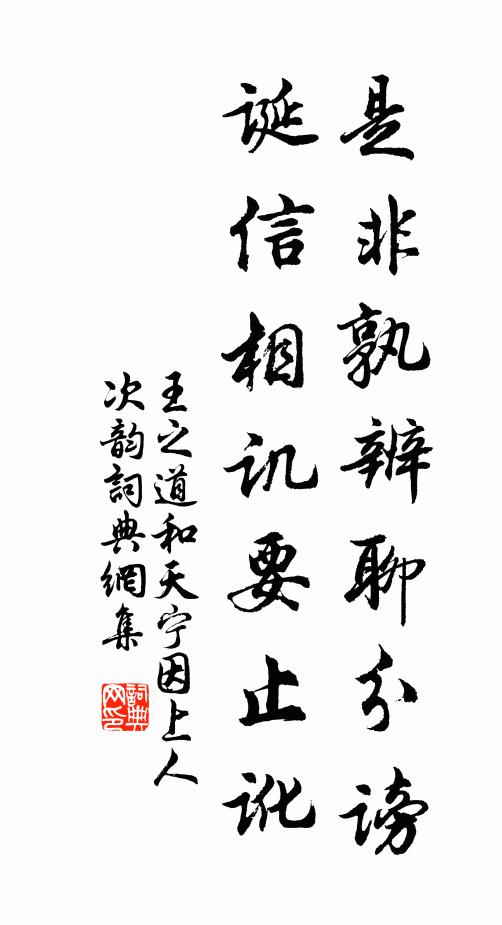 是非孰辨聊分謗
诞信相讥要止讹
王之道和天宁因上人
次韵詞典網集
詞典网印